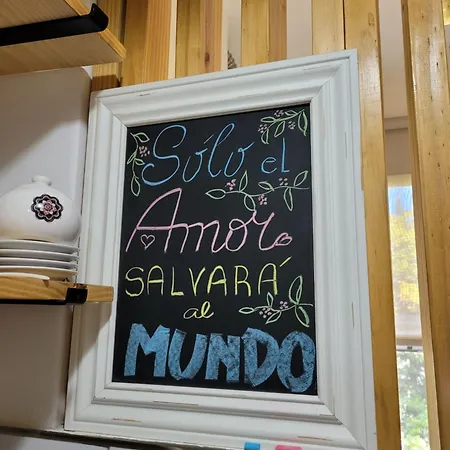 Sólo el
Amor
SALVARÁ
al
MUNDO